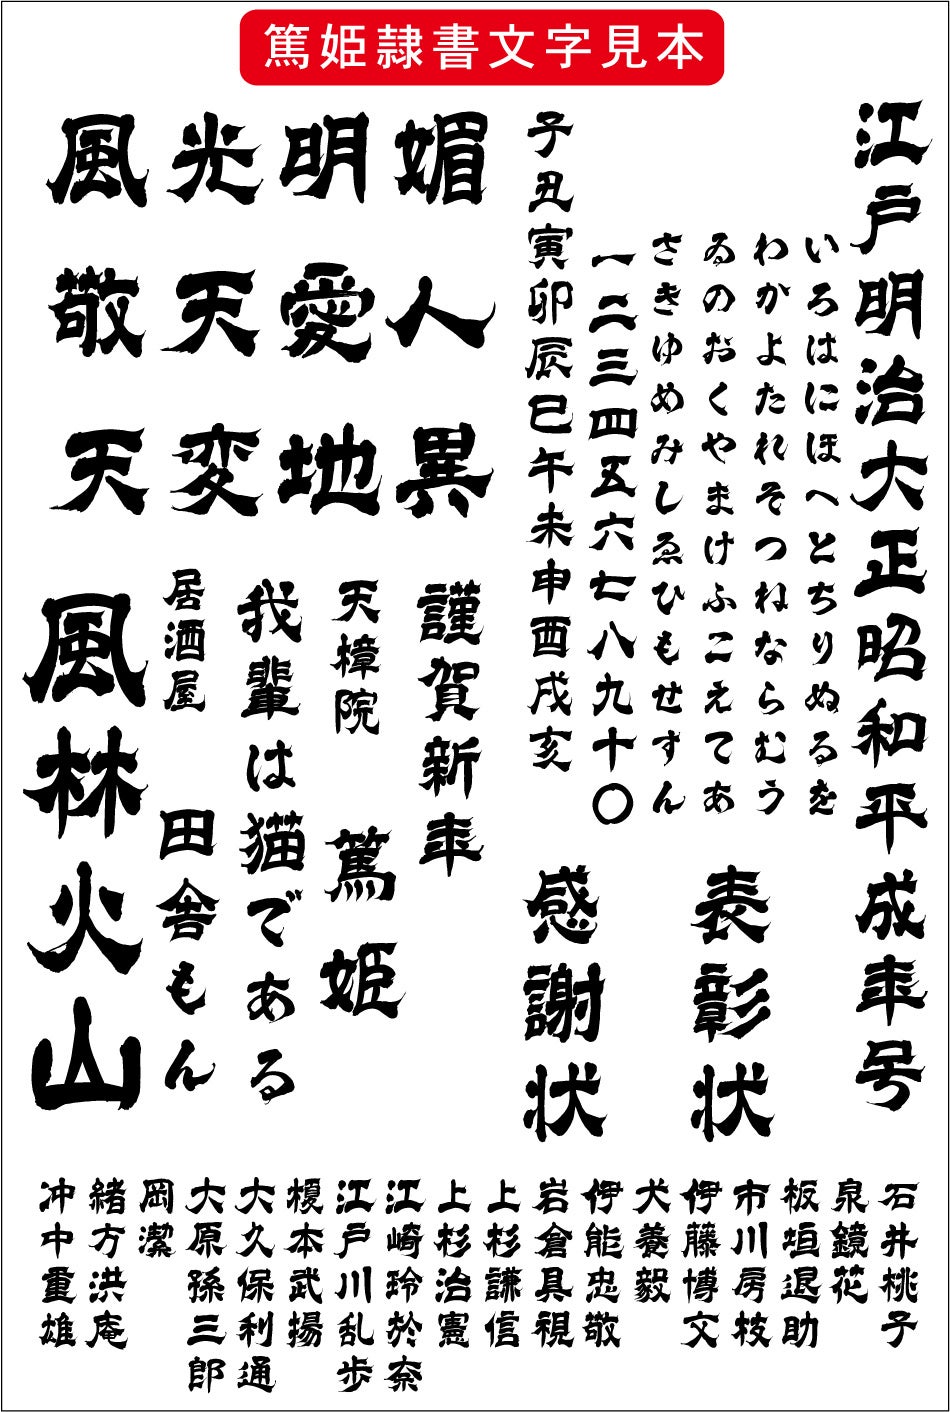 篤姫隷書文字見本
江戸明治大正昭和平成年号
いろはにほへとちりぬるを
わかよたれそつねならむう
ゐのおくやまけふこえてあ
さきゆめみしゑひもせすん
一二三四五六七八九十〇
子丑寅卯辰巳午未申酉戌亥
表彰状
感謝状
媚人異
明愛地
光天変
風敬天
謹賀新年
天樟院
篤姫
我輩は猫である
居酒屋
田舎もん
風林火山
石井桃子
泉鏡花
板垣退助
市川房枝
伊藤博文
犬養毅
伊能忠敬
岩倉具視
上杉謙信
上杉治憲
江崎玲於奈
江戸川乱歩
榎本武揚
大久保利通
大原孫三郎
岡潔
緒方洪庵
沖中重雄